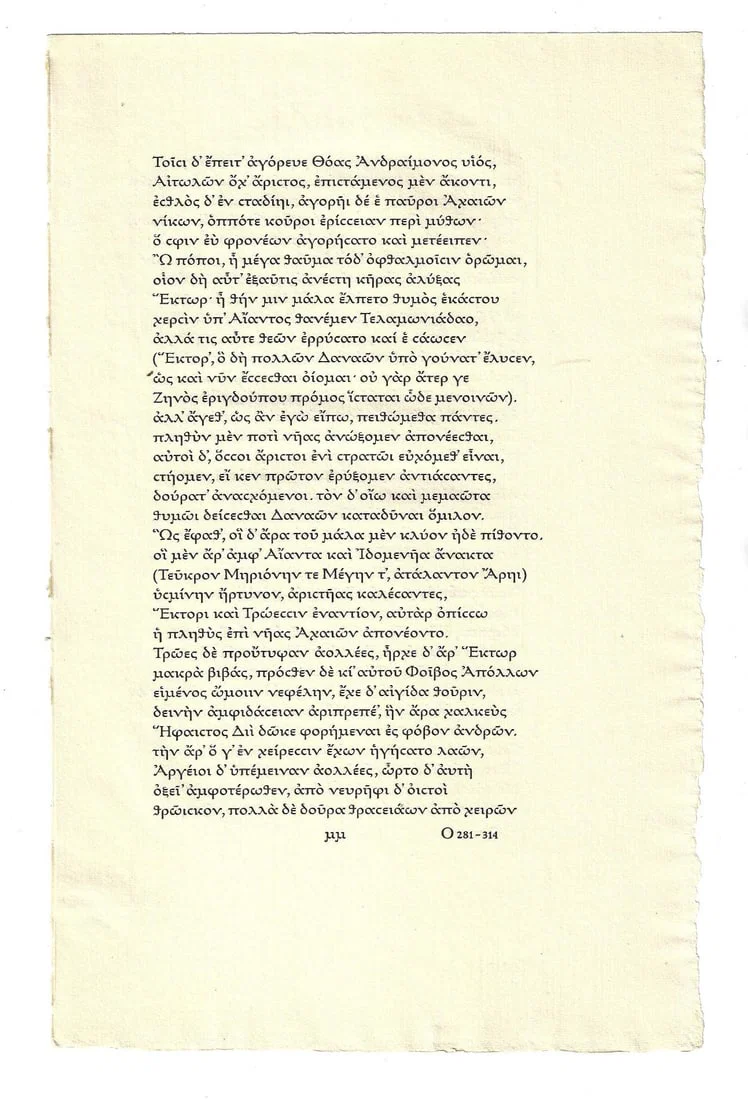 Τοῖϲι δ' ἔπειτ' ἀγόρευε Θόαϲ Ἀνδραίμονοϲ υἱόϲ,
Αἰτωλῶν ὄχ' ἄριϲτοϲ, ἐπιϲτάμενοϲ μὲν ἄκοντι,
ἐϲθλὸϲ δ' ἐν ϲταδίηι, ἀγορῆι δέ ἑ παῦροι Ἀχαιῶν
νίκων, ὁππότε κοῦροι ἐρίϲϲειαν περὶ μύθων·
ὅ ϲφιν ἐὺ φρονέων ἀγορήϲατο καὶ μετέειπεν·
Ὢ πόποι, ἦ μέγα θαῦμα τόδ' ὀφθαλμοῖϲιν ὁρῶμαι,
οἷον δὴ αὖτ' ἐξαῦτιϲ ἀνέϲτη κῆραϲ ἀλύξαϲ
Ἕκτωρ· ἦ θήν μιν μάλα ἔλπετο θυμὸϲ ἑκάϲτου
χερϲὶν ὑπ' Αἴαντοϲ θανέμεν Τελαμωνιάδαο,
ἀλλά τιϲ αὖτε θεῶν ἐρρύϲατο καί ἑ ϲάωϲεν
(Ἕκτορ', ὃ δὴ πολλῶν Δαναῶν ὑπὸ γούνατ' ἔλυϲεν,
ὡϲ καὶ νῦν ἔϲϲεϲθαι ὀίομαι· οὐ γὰρ ἄτερ γε
Ζηνὸϲ ἐριγδούπου πρόμοϲ ἵϲταται ὧδε μενοινῶν).
ἀλλ' ἄγεθ', ὡϲ ἂν ἐγὼ εἴπω, πειθώμεθα πάντεϲ.
πληθὺν μὲν ποτὶ νῆαϲ ἀνώξομεν ἀπονέεϲθαι,
αὐτοὶ δ', ὅϲϲοι ἄριϲτοι ἐνὶ ϲτρατῶι εὐχόμεθ' εἶναι,
ϲτήομεν, εἴ κεν πρῶτον ἐρύξομεν ἀντιάϲαντεϲ,
δούρατ' ἀναϲχόμενοι. τὸν δ' οἴω καὶ μεμαῶτα
θυμῶι δείϲεϲθαι Δαναῶν καταδῦναι ὅμιλον.
Ὣϲ ἔφαθ', οἳ δ' ἄρα τοῦ μάλα μὲν κλύον ἠδὲ πίθοντο.
οἳ μὲν ἄρ' ἀμφ' Αἴαντα καὶ Ἰδομενῆα ἄνακτα
(Τεῦκρον Μηριόνην τε Μέγην τ', ἀτάλαντον Ἄρηι)
ὑϲμίνην ἤρτυνον, ἀριϲτῆαϲ καλέϲαντεϲ,
Ἕκτορι καὶ Τρώεϲϲιν ἐναντίον, αὐτὰρ ὀπίϲϲω
ἣ πληθὺϲ ἐπὶ νῆαϲ Ἀχαιῶν ἀπονέοντο.
Τρῶεϲ δὲ προὔτυψαν ἀολλέεϲ, ἦρχε δ' ἄρ' Ἕκτωρ
μακρὰ βιβάϲ, πρόϲθεν δὲ κί' αὐτοῦ Φοῖβοϲ Ἀπόλλων
εἱμένοϲ ὤμοιιν νεφέλην, ἔχε δ' αἰγίδα θοῦριν,
δεινὴν ἀμφιδάϲειαν ἀριπρεπέ', ἣν ἄρα χαλκεὺϲ
Ἥφαιϲτοϲ Διὶ δῶκε φορήμεναι ἐϲ φόβον ἀνδρῶν.
τὴν ἄρ' ὅ γ' ἐν χείρεϲϲιν ἔχων ἡγήϲατο λαῶν,
Ἀργεῖοι δ' ὑπέμειναν ἀολλέεϲ, ὦρτο δ' ἀυτὴ
ὀξεῖ' ἀμφοτέρωθεν, ἀπὸ νευρῆφι δ' ὀιϲτοὶ
θρῶιϲκον, πολλὰ δὲ δοῦρα θραϲειάων ἀπὸ χειρῶν
μμ Ο 281–314